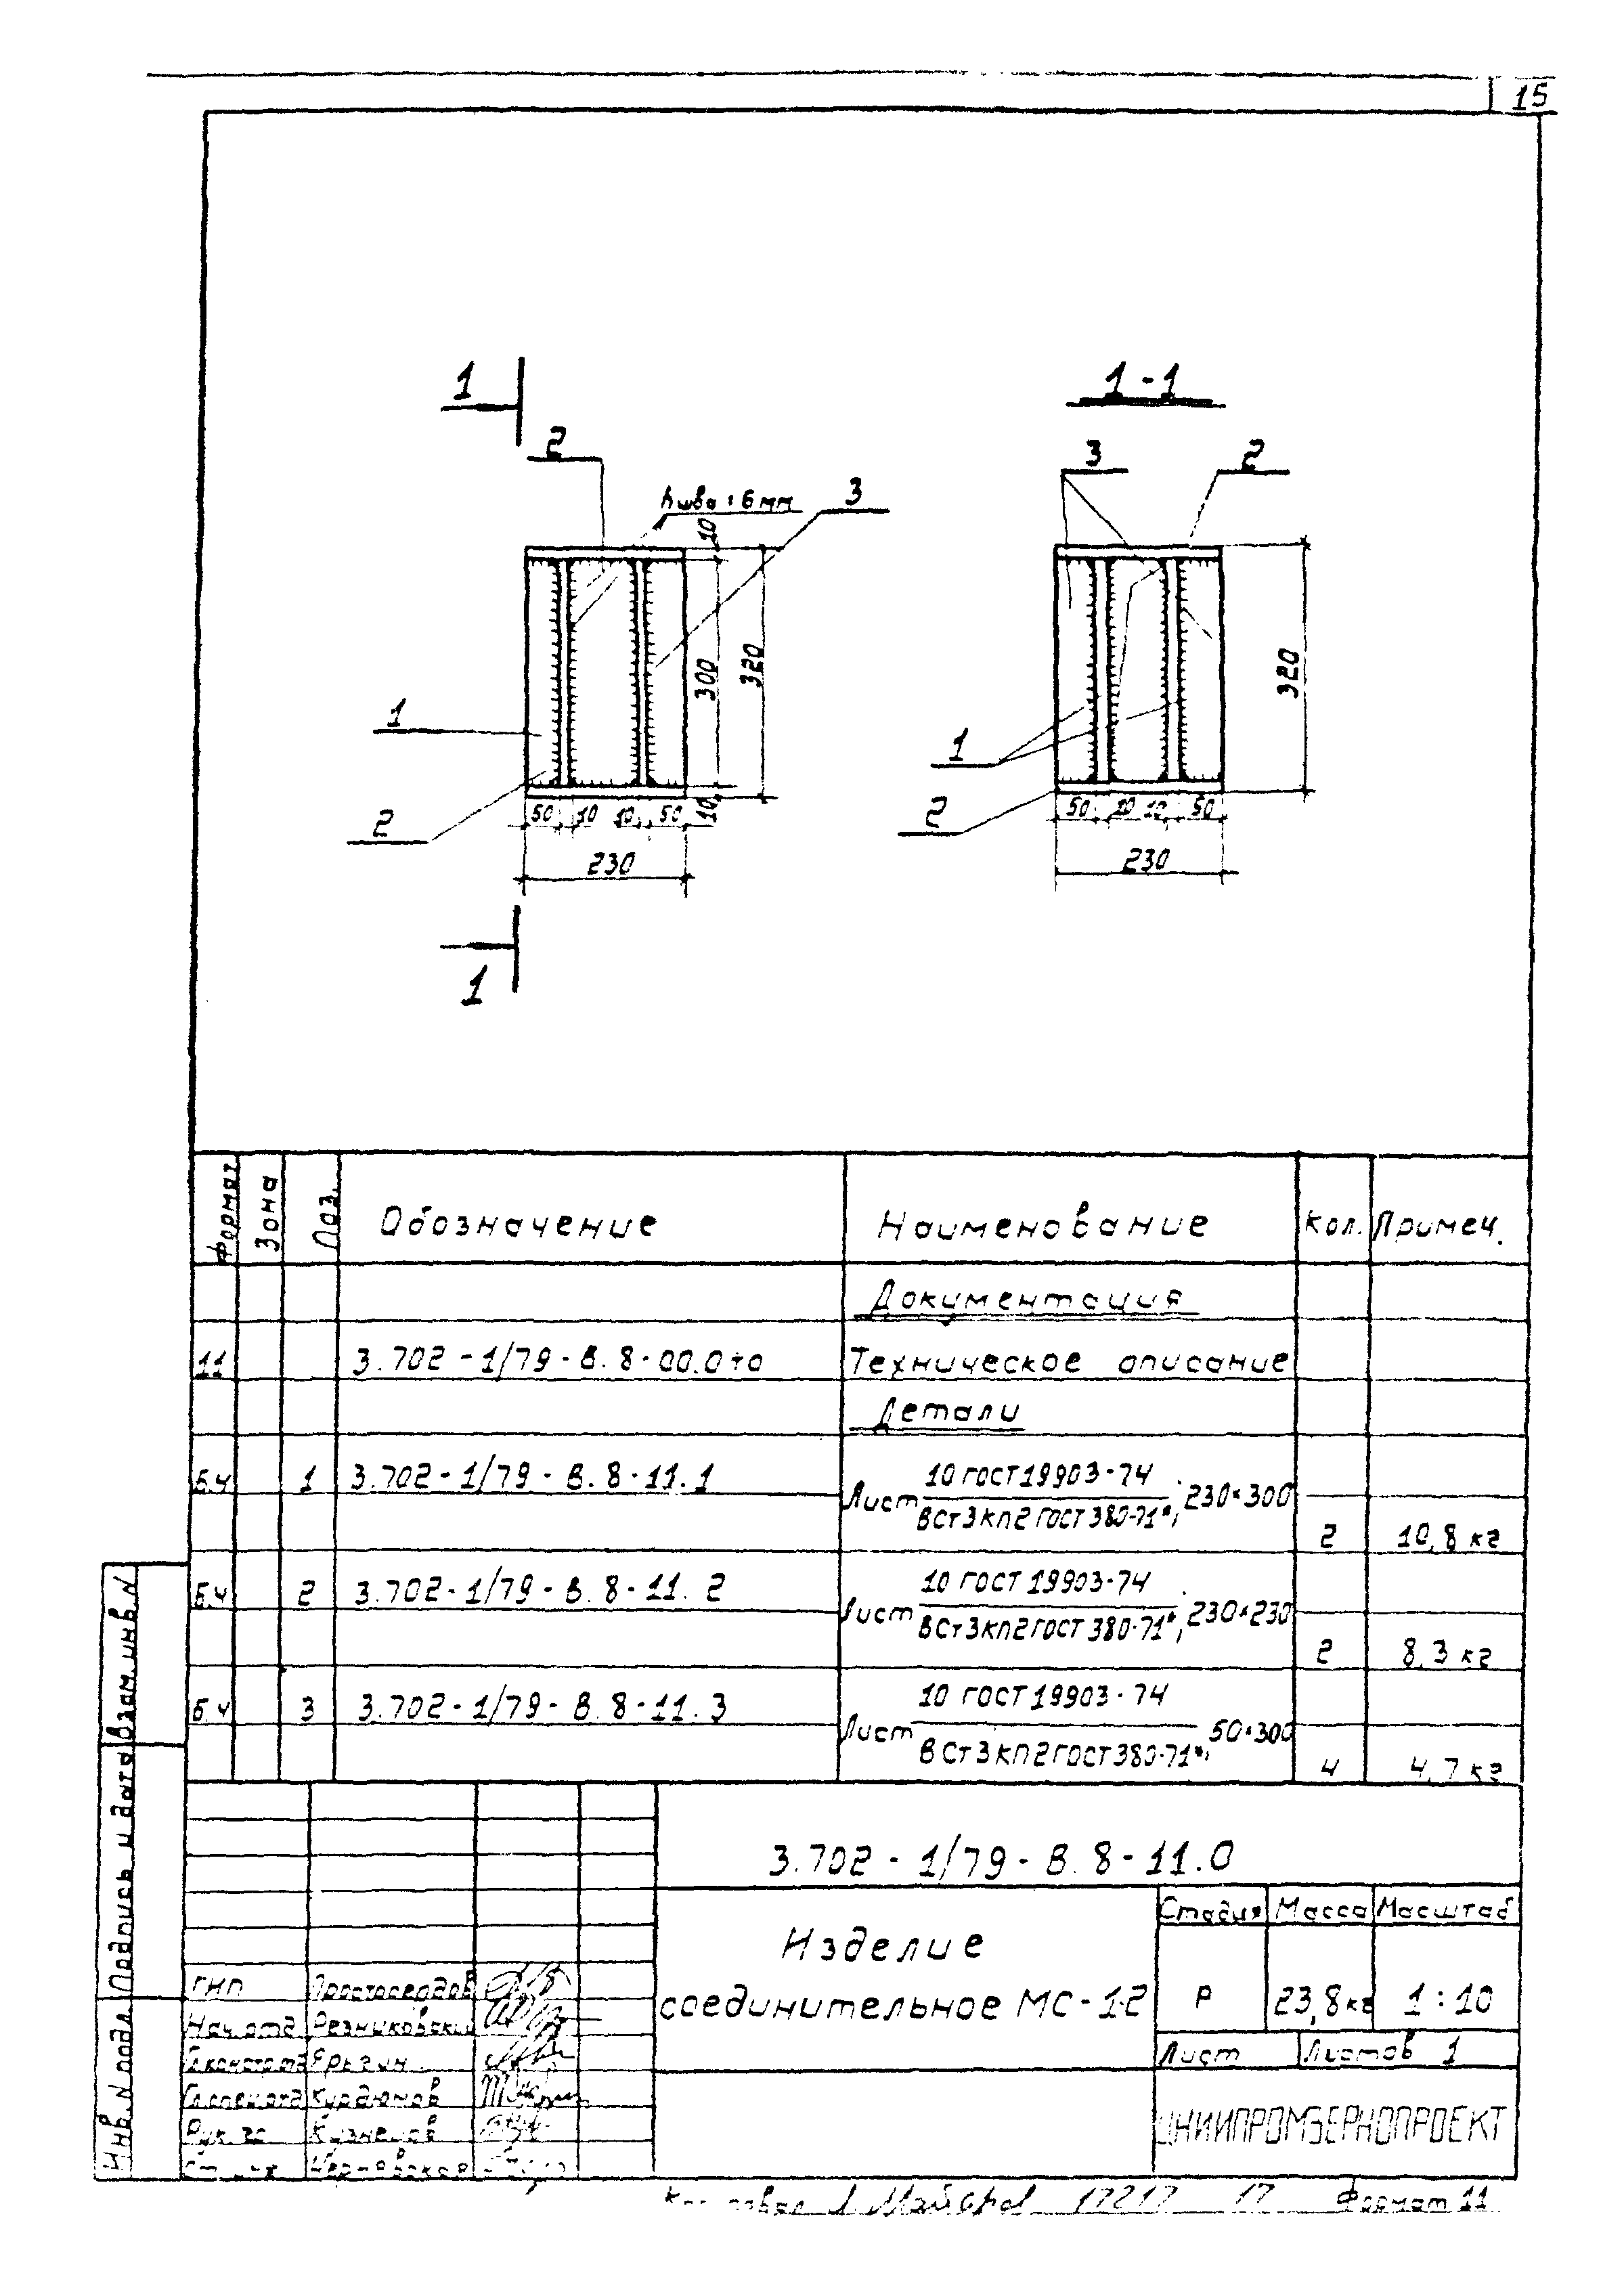 15
1
1-1
2
3
2
hшва = 6мм
3
10
300
320
320
1
1
2
2
50 10 10 50 10
50 10 10 50
230
230
1
Формат Зона Поз. Обозначение Наименование Кол. Примеч.
Документация
11 3.702-1/79-В.8-00.0то Техническое описание
Детали
Б.Ч 1 3.702-1/79-В.8-11.1 Лист 10 ГОСТ 19903-74
ВСт3кп2 ГОСТ 380-71*; 230×300
2 10,8 кг
Б.Ч 2 3.702-1/79-В.8-11.2 Лист 10 ГОСТ 19903-74
ВСт3кп2 ГОСТ 380-71*; 230×230
2 8,3 кг
Б.Ч 3 3.702-1/79-В.8-11.3 Лист 10 ГОСТ 19903-74
ВСт3кп2 ГОСТ 380-71*; 50×300
4 4,7 кг
3.702-1/79-В.8-11.0
Изделие
соединительное МС-12
Стадия Масса Масштаб
Р 23,8 кг 1:10
Лист Листов 1
ЦНИИПРОМЗЕРНОПРОЕКТ
ГИП
Нач. отд Резниковский
Гл.констр.отд Ярыгин
Гл.спец.отд Курдюмов
Рук. гр Кузнецов
Ст. инж Чернявская
Взам. инв. N
Подпись и дата
Инв. N подл
17217 17 Формат 11